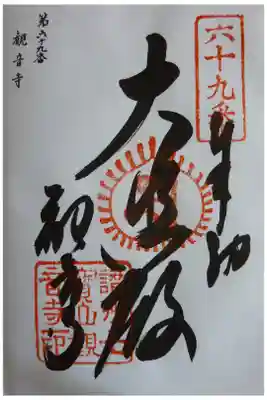 六十九番
奉納
大悲殿
観音寺
讃州七
寳山観
音寺印
第六十九番
観音寺